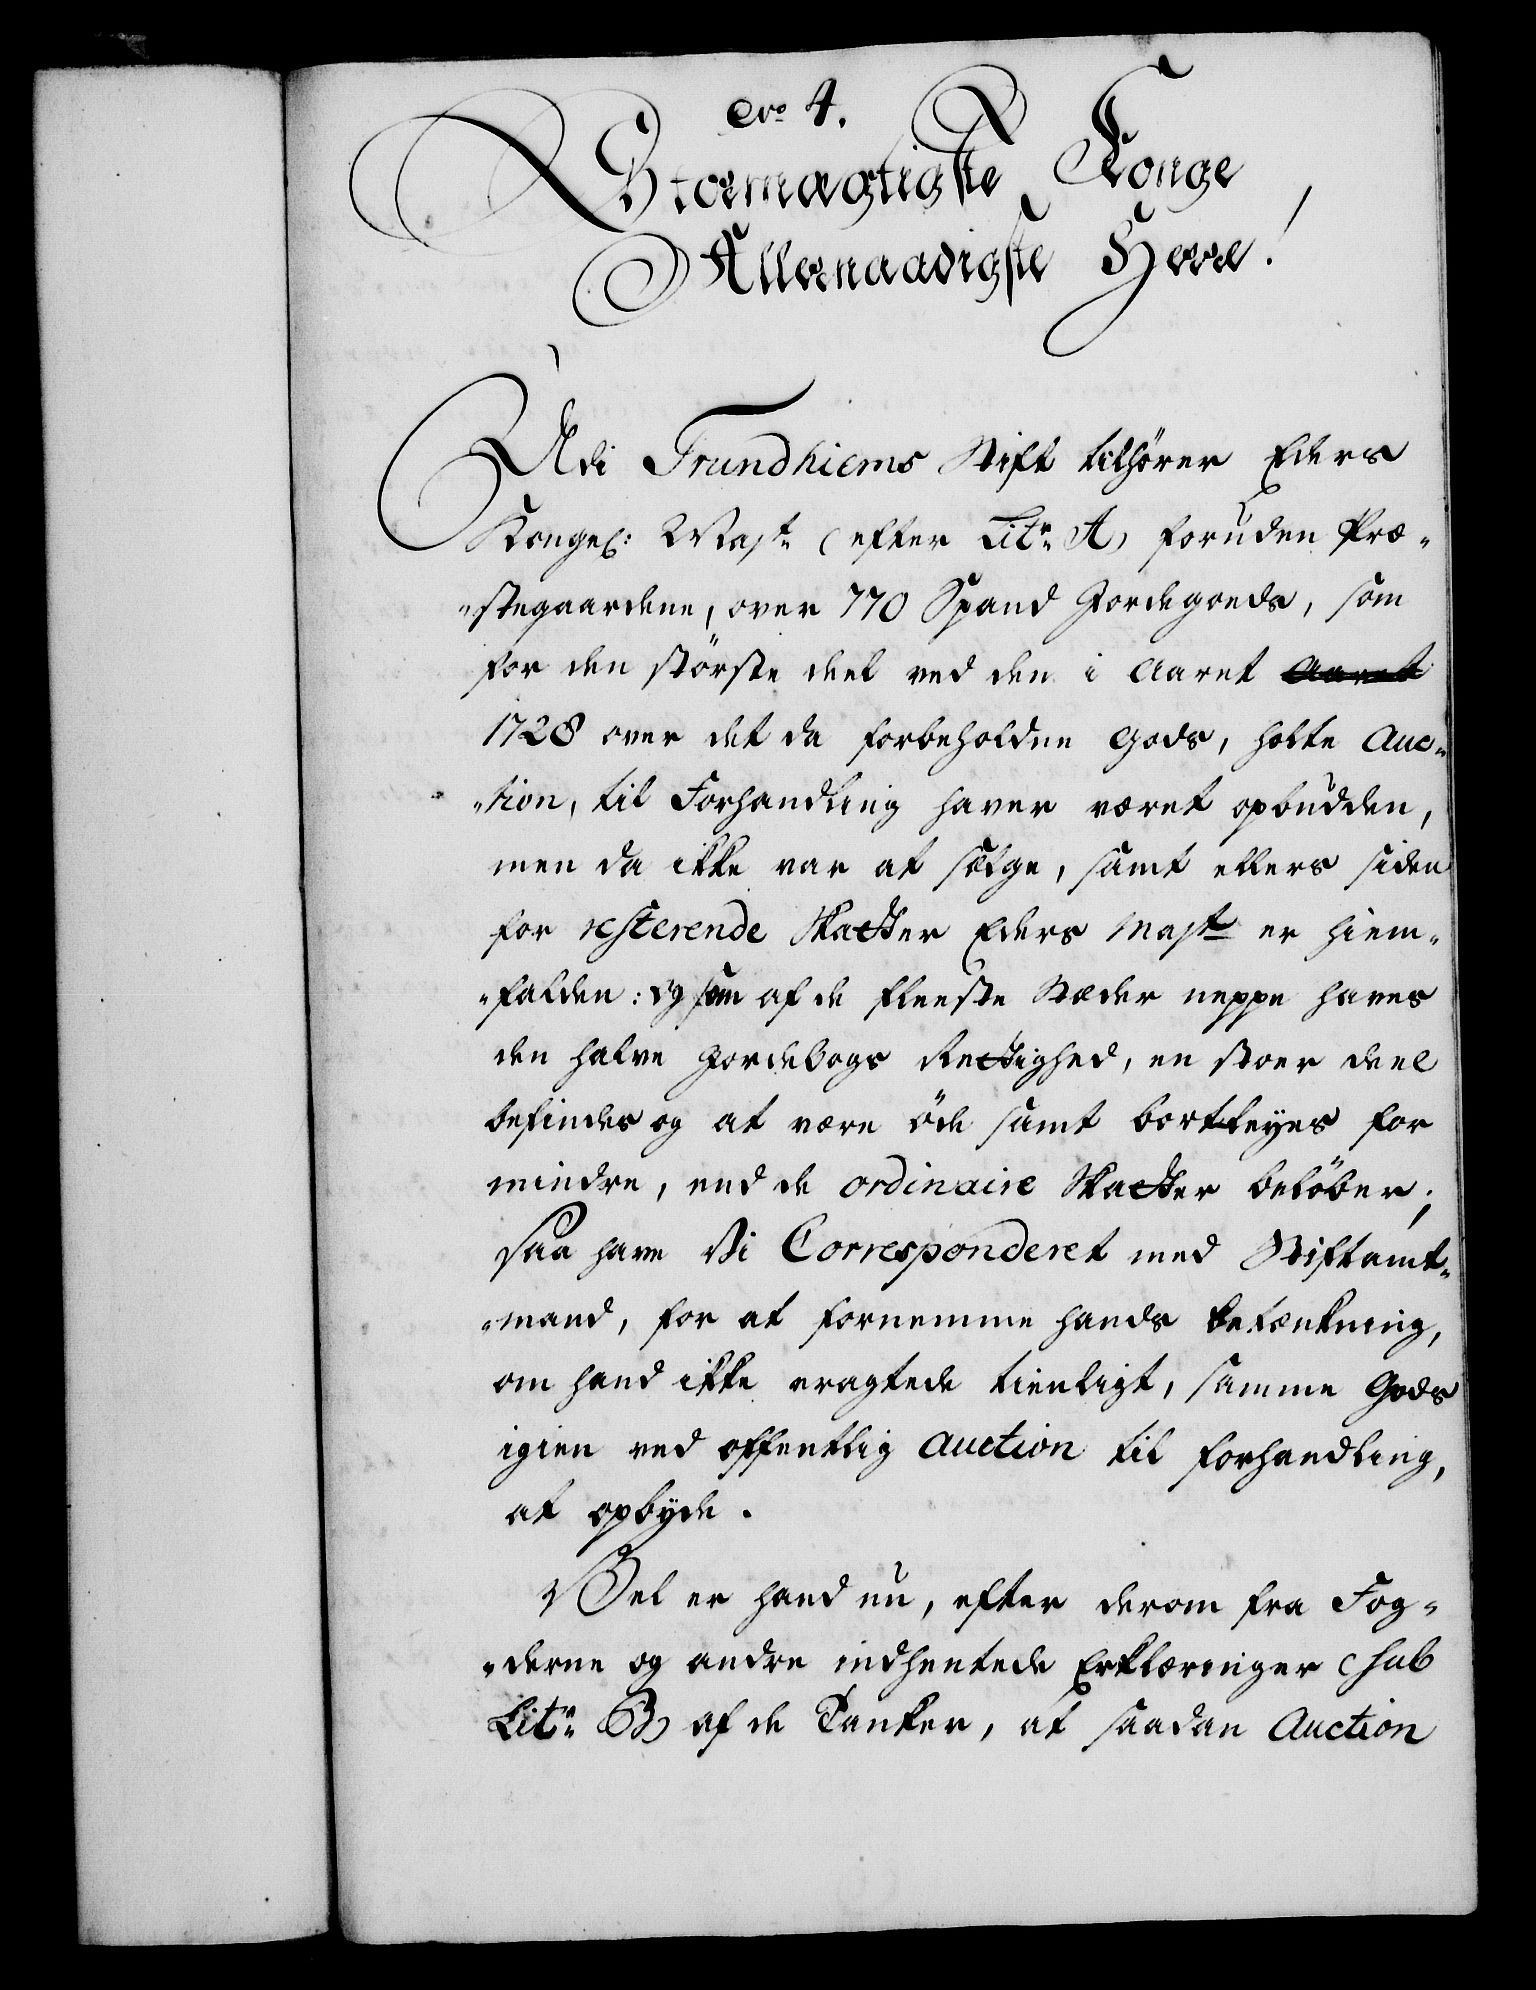 No 4.
Stormægtigste Konge
Allernaadigste Herre!
Udi Trundhiems Stift tilhører Eders
Kongel: Mayt (efter Litr A) foruden Præ-
-stegaardene, over 770 Spand Jordegoeds, som
for den störste deel ved den i Aaret Aaret
1728 over det da forbeholdne Gods, holte Auc-
-tion, til Forhandling haver været opbudden,
men da ikke var at sælge, samt ellers siden
for resterende Skatter Eders Mayt er hiem-
-falden: og som af de fleeste Stæder neppe haves
den halve Jordebogs Rettighed, en stoer deel
befindes og at være öde samt bortleyes for
mindre, end de ordinaire Skatter belöber;
saa have Vi Corresponderet med Stiftamt-
-mand, for at fornemme hands betænkning,
om hand ikke eragtede tienligt, samme Gods
igien ved offentlig Auction til forhandling,
at opbyde.
Vel er hand nu, efter derom fra Fog-
-derne og andre indhentede Erklæringer (sub
Litr B) af de Tanker, at saadan Auction